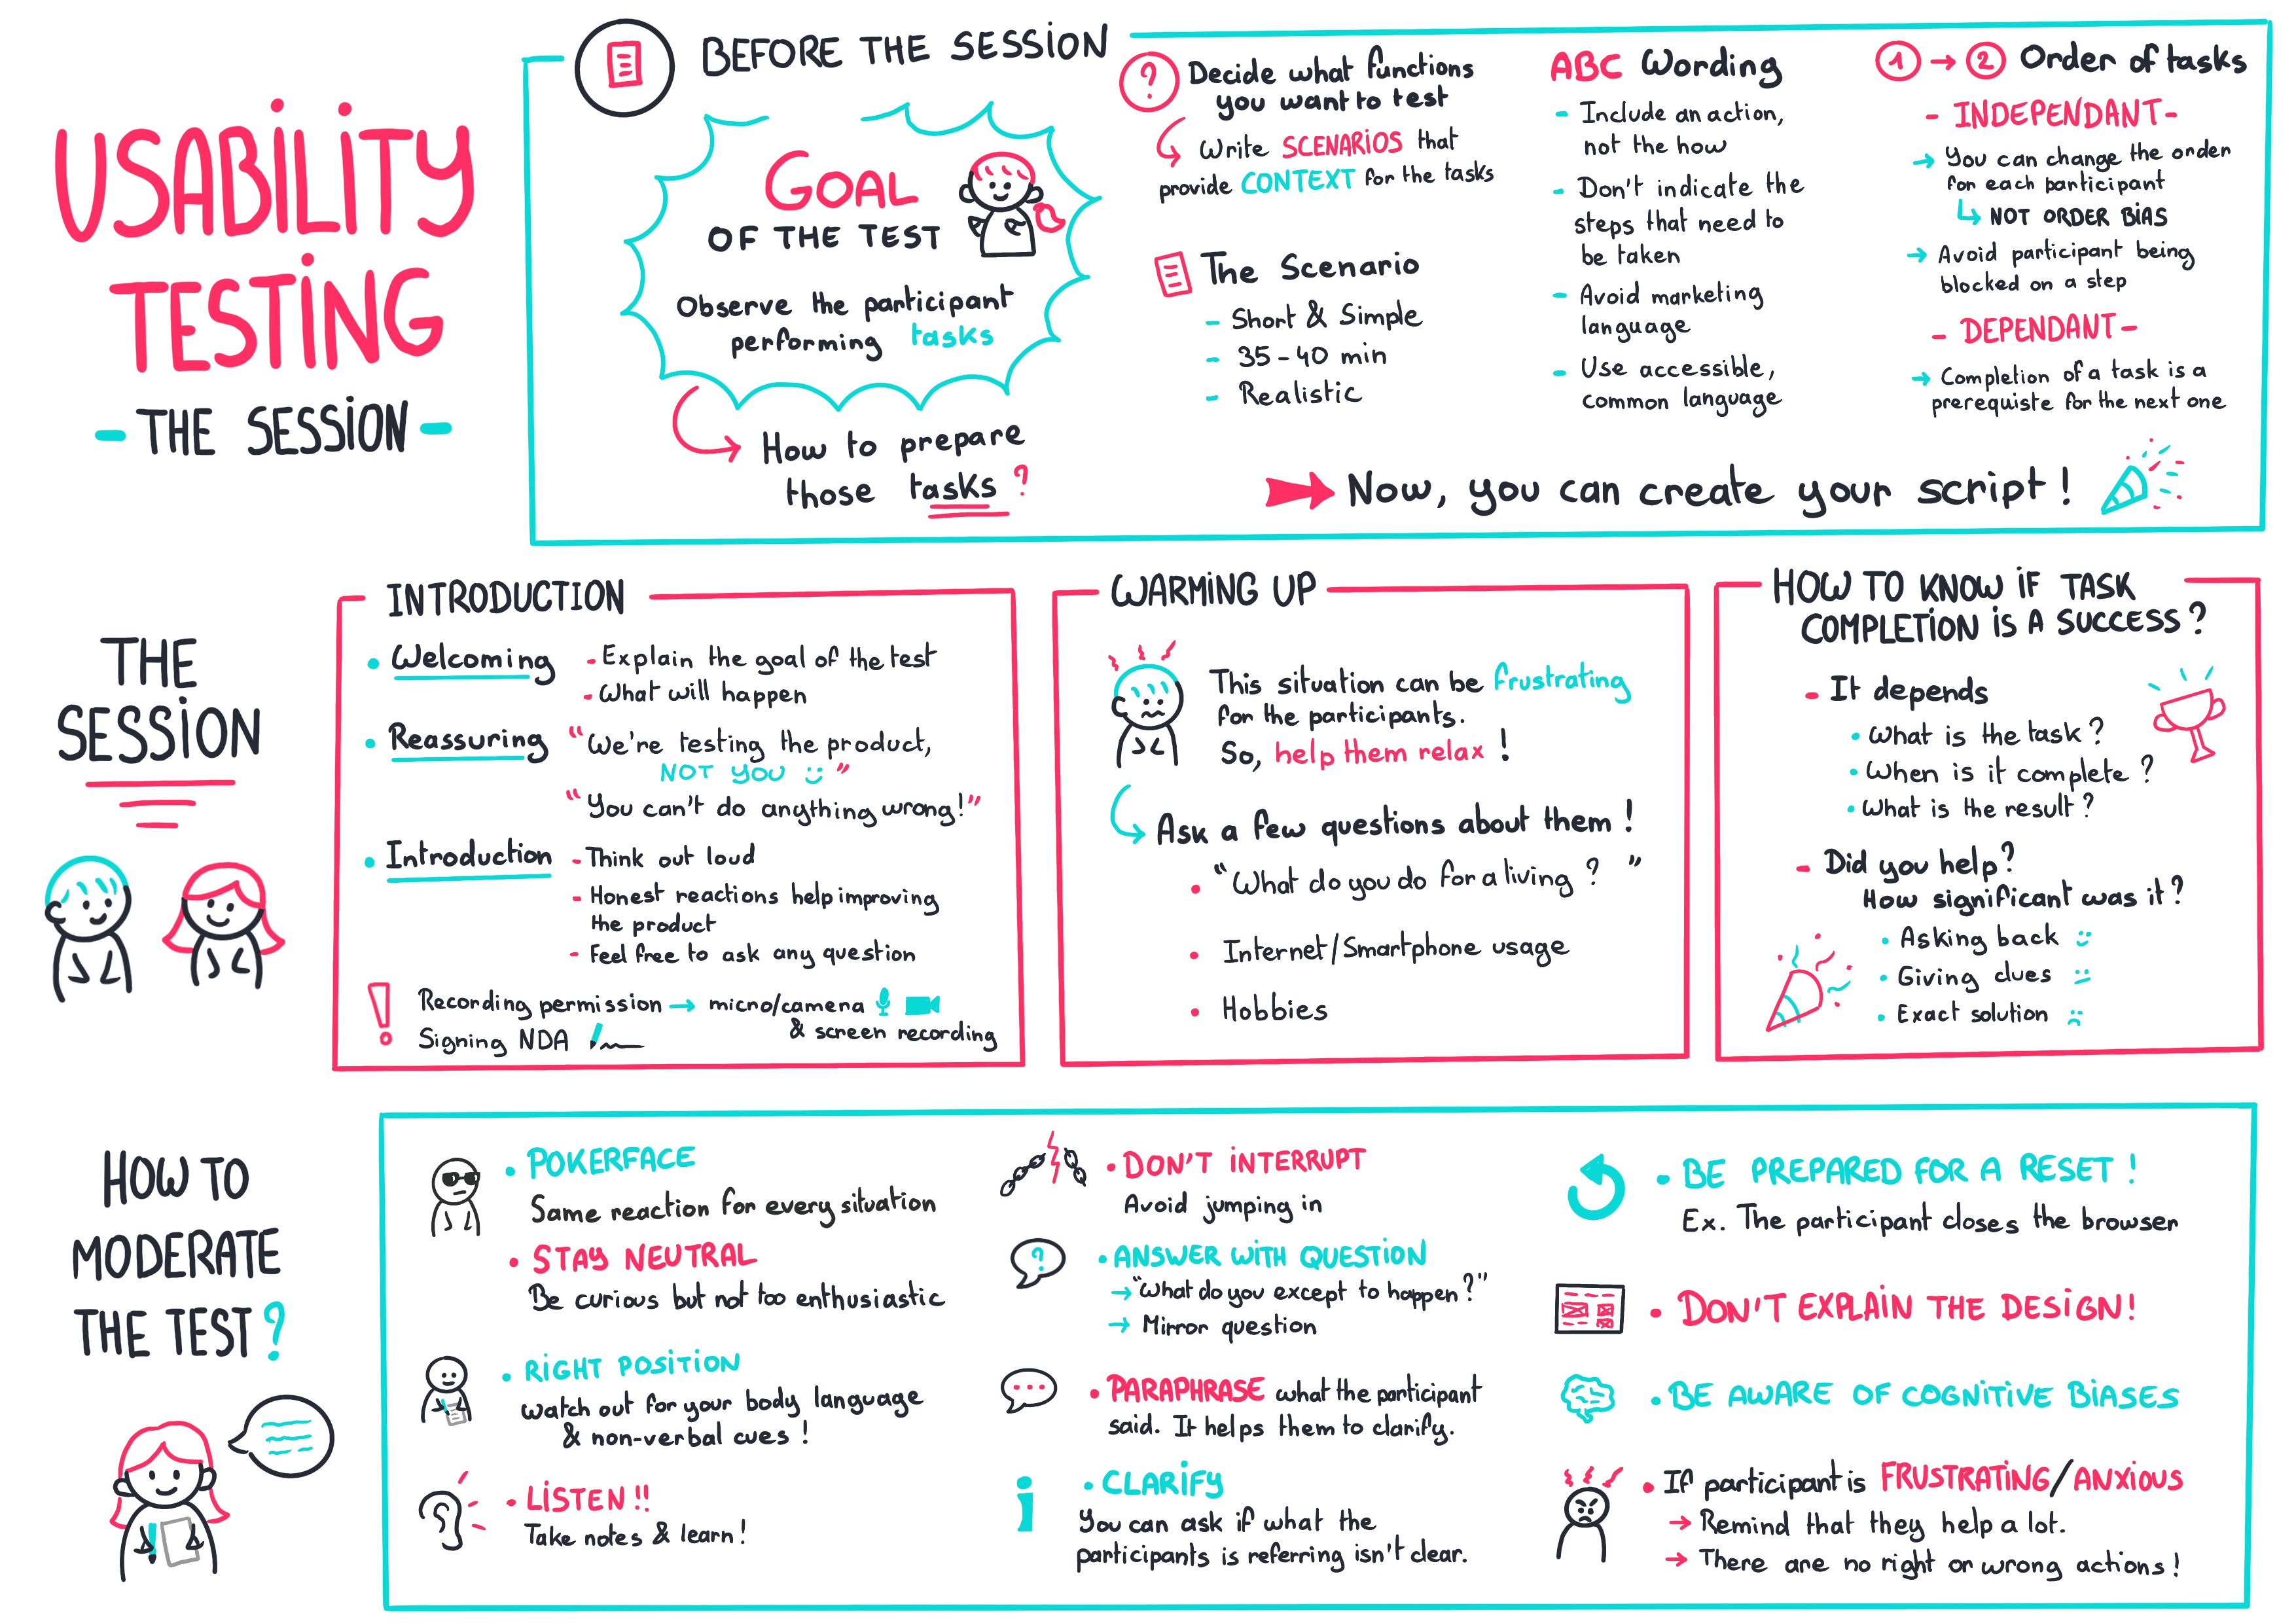 USABILITY
TESTING
- THE SESSION -
BEFORE THE SESSION
GOAL
OF THE TEST
Observe the participant
performing tasks
How to prepare
those tasks ?
? Decide what functions
you want to test
Write SCENARIOS that
provide CONTEXT for the tasks
The Scenario
- Short & Simple
- 35-40 min
- Realistic
ABC Wording
- Include an action,
not the how
- Don't indicate the
steps that need to
be taken
- Avoid marketing
language
- Use accessible,
common language
1 → 2 Order of tasks
- INDEPENDANT -
→ You can change the order
for each participant
↳ NOT ORDER BIAS
→ Avoid participant being
blocked on a step
- DEPENDANT -
→ Completion of a task is a
prerequiste for the next one
→ Now, you can create your script !
THE
SESSION
INTRODUCTION
• Welcoming
- Explain the goal of the test
- What will happen
• Reassuring
"We're testing the product,
NOT YOU :)"
"You can't do anything wrong!"
• Introduction
- Think out loud
- Honest reactions help improving
the product
- Feel free to ask any question
! Recording permission → micro/camera
& screen recording
Signing NDA
WARMING UP
This situation can be frustrating
for the participants.
So, help them relax !
Ask a few questions about them !
• "What do you do for a living ? "
• Internet/Smartphone usage
• Hobbies
HOW TO KNOW IF TASK
COMPLETION IS A SUCCESS ?
- It depends
• What is the task ?
• When is it complete ?
• What is the result ?
- Did you help ?
How significant was it ?
• Asking back :)
• Giving clues :|
• Exact solution :(
HOW TO
MODERATE
THE TEST ?
• POKERFACE
Same reaction for every situation
• STAY NEUTRAL
Be curious but not too enthusiastic
• RIGHT POSITION
Watch out for your body language
& non-verbal cues !
• LISTEN !!
Take notes & learn !
• DON'T INTERRUPT
Avoid jumping in
?
• ANSWER WITH QUESTION
→ "What do you except to happen ?"
→ Mirror question
• PARAPHRASE what the participant
said. It helps them to clarify.
i • CLARIFY
You can ask if what the
participants is referring isn't clear.
• BE PREPARED FOR A RESET !
Ex. The participant closes the browser
• DON'T EXPLAIN THE DESIGN !
• BE AWARE OF COGNITIVE BIASES
• If participant is FRUSTRATING/ANXIOUS
→ Remind that they help a lot.
→ There are no right or wrong actions !